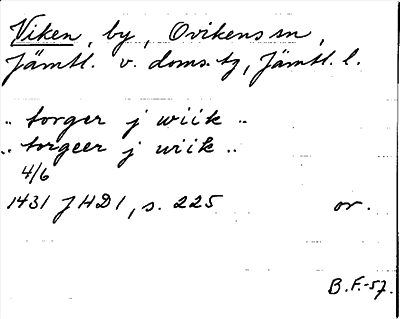 Viken, by, Ovikens sn,
Jämtl. v. doms. tg, Jämtl. l.
.. torger j wiik ..
.. torgeer j wiik ..
4/6
1431 JHD 1, s. 225 or.
B.F.-57.